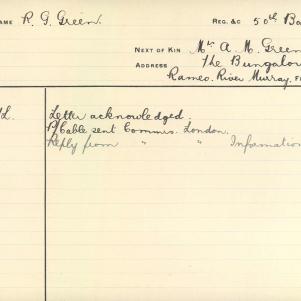 NAME R. G. Green. REG. &C 50th Ba
NEXT OF KIN Mr A. M. Green
ADDRESS The Bungalow
Rameo. River Murray.
L. Letter acknowledged.
P/Cable sent Commis. London.
Reply from " " Information